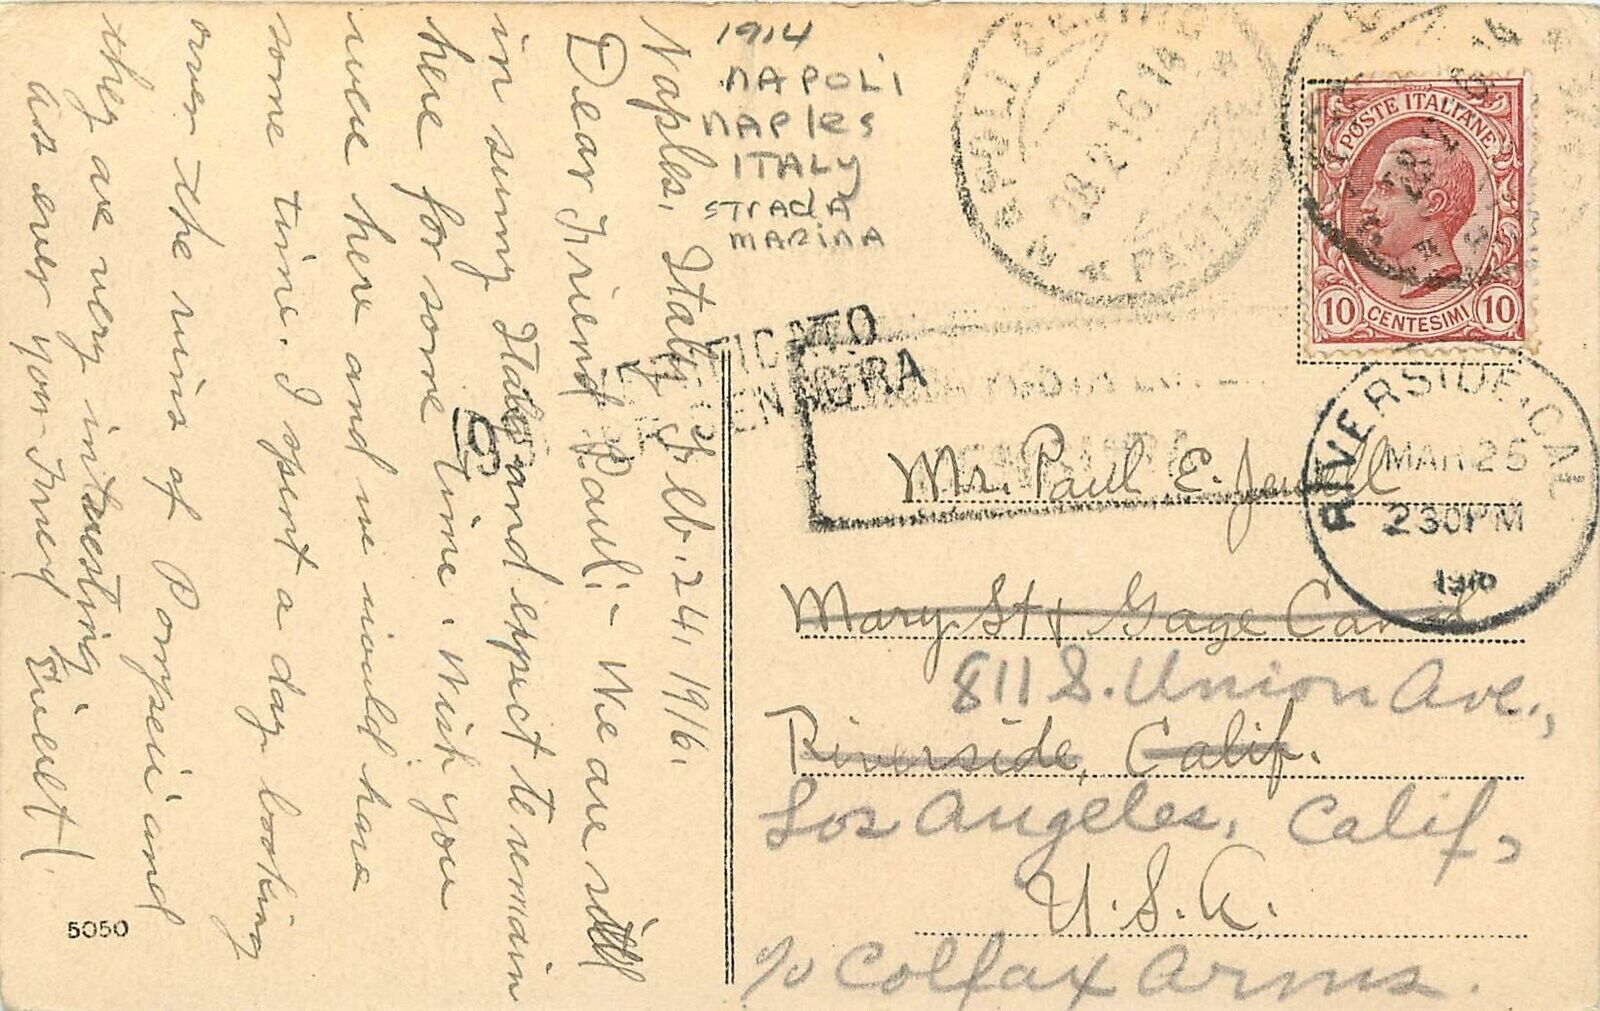 Naples, Italy Feb. 24, 1916.
Dear Friend Paul:- We are still
in sunny Italy and expect to remain
here for some time. Wish you
were here and we would have
some time. I spent a day looking
over the ruins of Pompeii and
they are very interesting
As ever your friend
5050
1914
NAPOLI
NAPLES
ITALY
STRADA
MARINA
28.2.16.
POSTE ITALIANE
10 CENTESIMI 10
RIVERSIDE, CAL
MAR 25
230PM
1916
Mr. Paul E. Jewell
Mary St & Gage Canal
811 S. Union Ave.,
Riverside, Calif.
Los Angeles, Calif,
U.S.A.
c/o Colfax Arms.